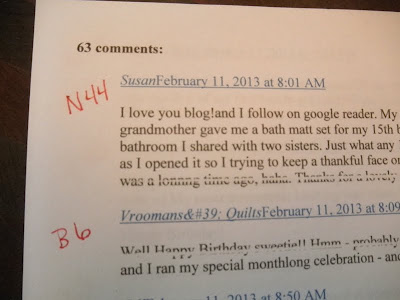 63 comments:
N44
SusanFebruary 11, 2013 at 8:01 AM
I love you blog!and I follow on google reader. My
grandmother gave me a bath matt set for my 15th b
bathroom I shared with two sisters. Just what any
as I opened it so I trying to keep a thankful face or
was a lonnng time ago, haha. Thanks for a lovely
B6
Vroomans&#39; QuiltsFebruary 11, 2013 at 8:09
Well Happy Birthday sweetie!! Hmm - probably
and I ran my special monthlong celebration - and
11, 2013 at 8:50 AM